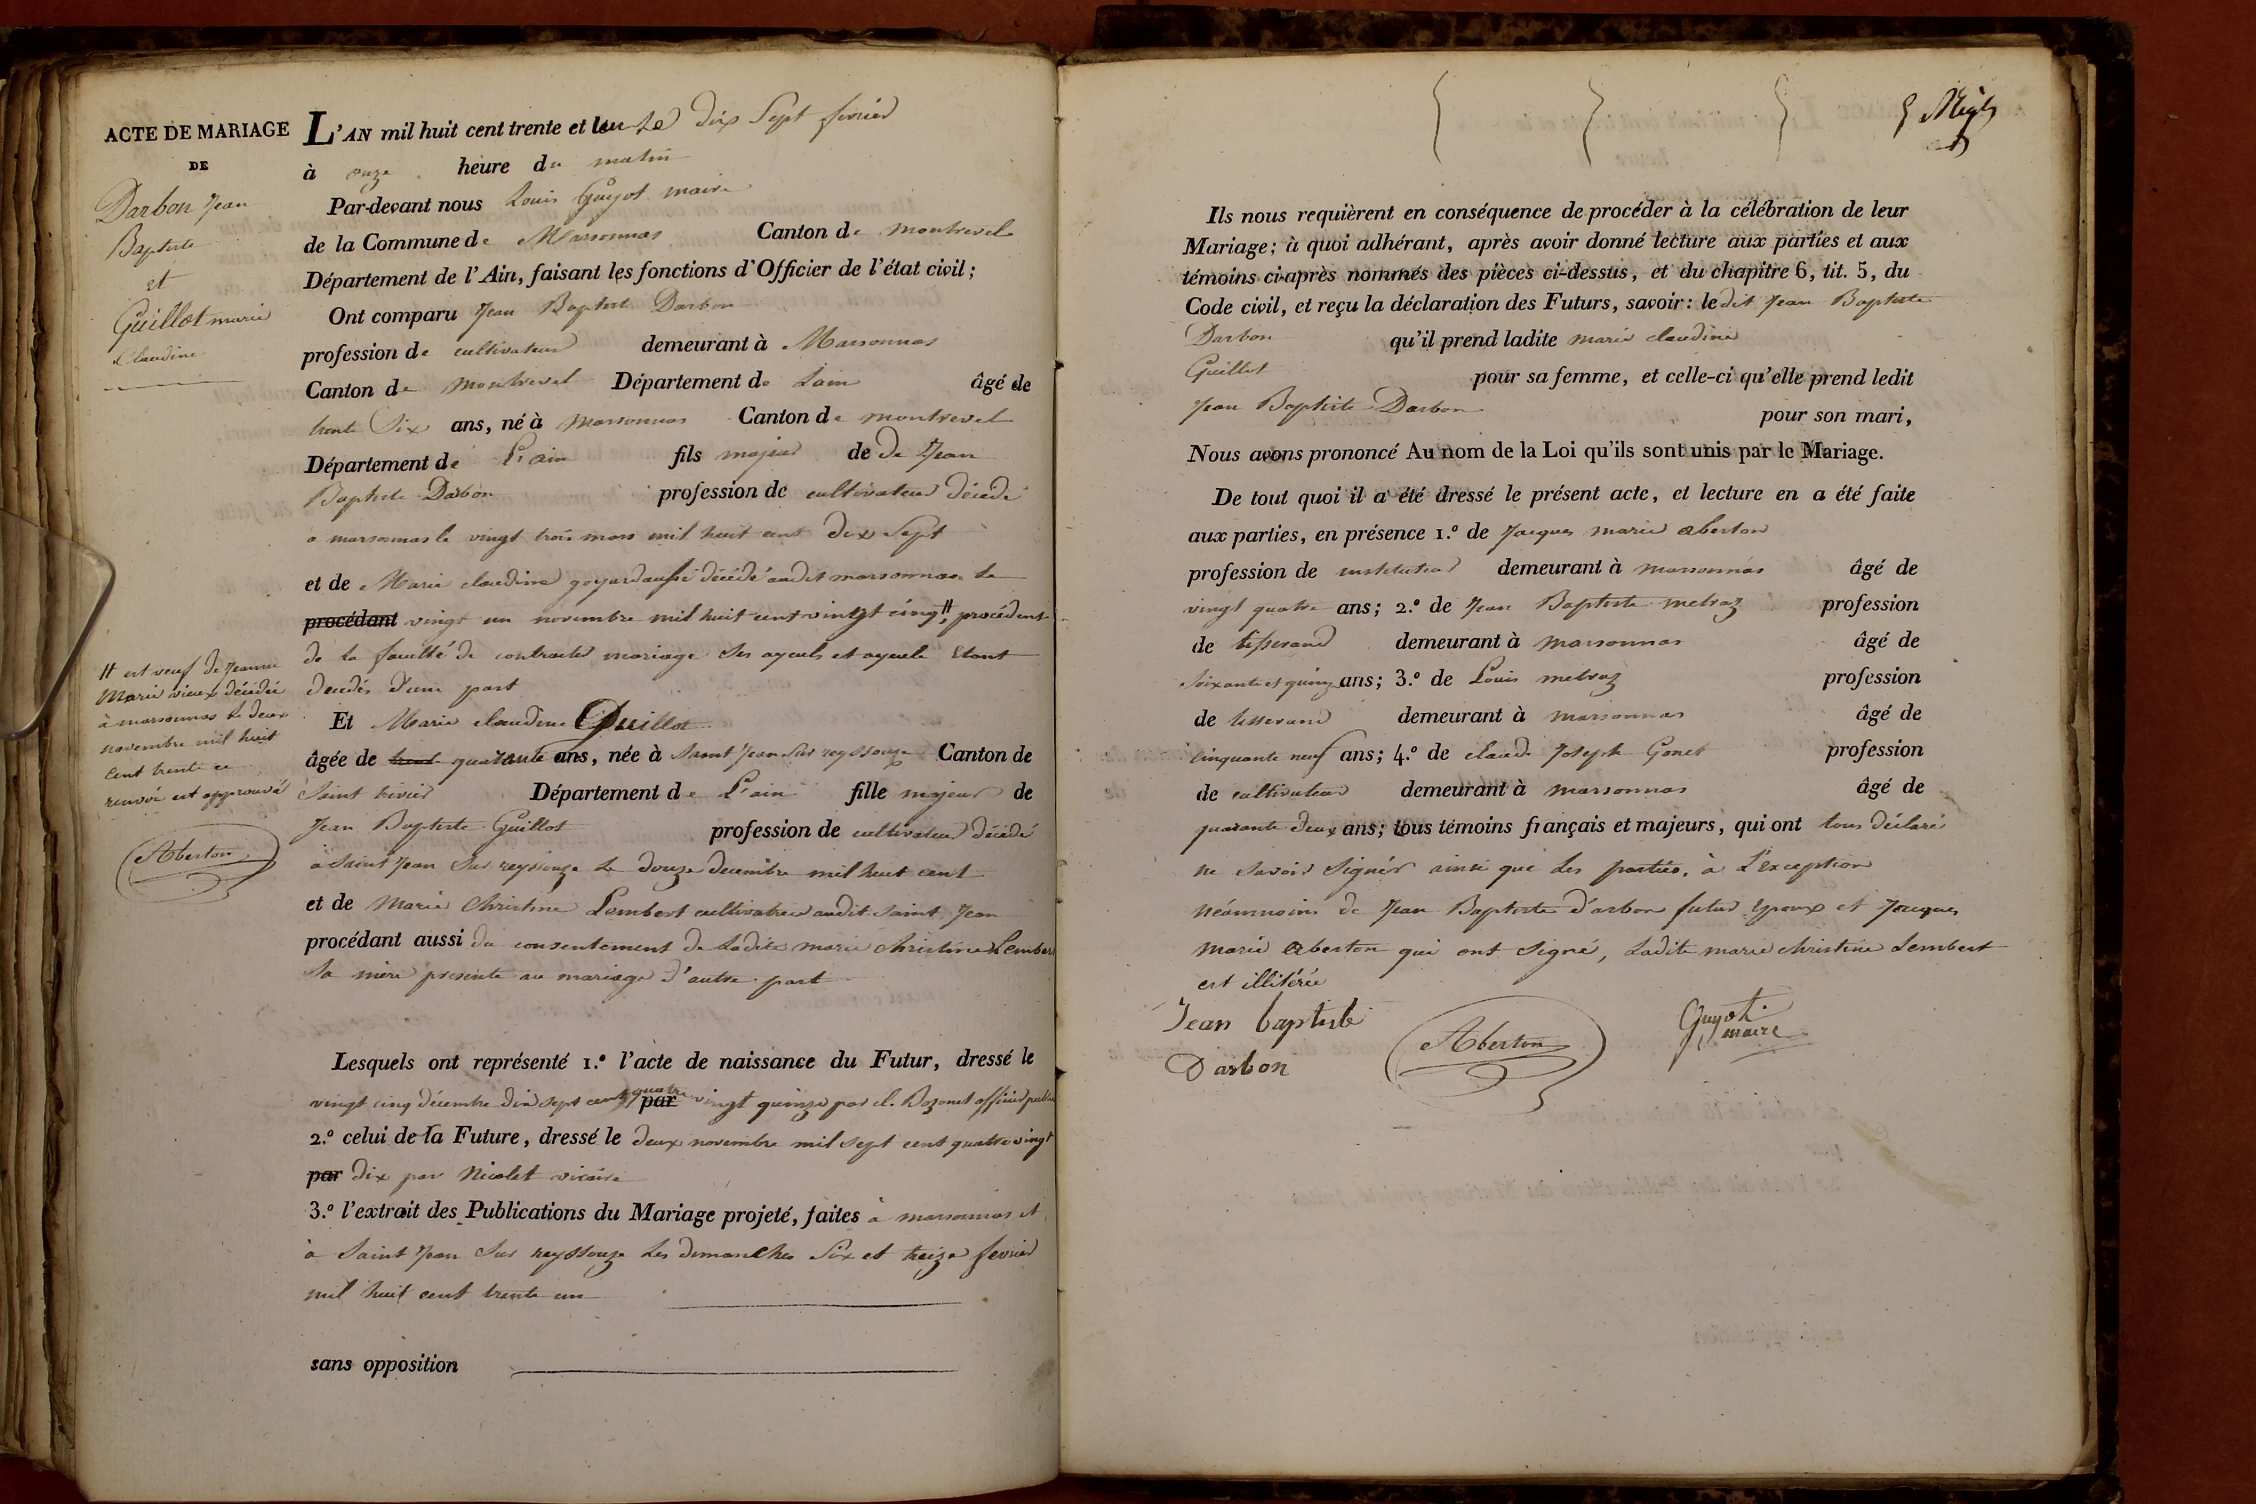 ACTE DE MARIAGE
DE
Darbon Jean
Baptiste
et
Guillot marie
Claudine
L'AN mil huit cent trente et un Le dix Sept fevrier
à onze heure du matin
Par-devant nous Louis Guyot maire
de la Commune de Marsonnas Canton de montrevel
Département de l'Ain, faisant les fonctions d'Officier de l'état civil;
Ont comparu Jean Baptiste Darbon
profession de cultivateur demeurant à Marsonnas
Canton de montrevel Département de Lain âgé de
trente Six ans, né à marsonnas Canton de montrevel
Département de L'ain fils majeur de de Jean
Baptiste Darbon profession de cultivateur décédé
à marsonnas le vingt trois mars mil huit cent dix Sept
et de Marie claudine goyard aussi décédé audit marsonnas le
procédant vingt un novembre mil huit cent vintgt cinq #, procédent
de la faculté de contracter mariage Ses ayeuls et ayeule Etant
decedés d'une part
# est veuf de Jeanne
Marie vieux décédée
à marsonnas le deux
novembre mil huit
cent trente ce
renvoi est approuvé
Aberton
Et Marie claudine Guillot
âgée de trent quarante ans, née à Saint Jean Sur reyssouze Canton de
Saint trivier Département de L'ain fille majeur de
Jean Baptiste Guillot profession de cultivateur décédé
à Saint Jean Sur reyssouze Le douze decembre mil huit cent
et de Marie Christine Lembert cultivatrice audit Saint Jean
procédant aussi du consentement de Ladite marie christine Lembert
Sa mère présente au mariage d'autre part
Lesquels ont représenté 1.° l'acte de naissance du Futur, dressé le
vingt cinq décembre dix sept cent quatre par vingt quinze par cl. Bozonet officier public
2.° celui de la Future, dressé le deux novembre mil sept cent quatre vingt
par dix par Nicolet vicaire
3.° l'extrait des Publications du Mariage projeté, faites à marsonnas et
à Saint Jean Sur reyssouze Les dimanches Six et treize fevrier
mil huit cent trente un
sans opposition
Ils nous requièrent en conséquence de procéder à la célébration de leur
Mariage; à quoi adhérant, après avoir donné lecture aux parties et aux
témoins ci-après nommés des pièces ci-dessus, et du chapitre 6, tit. 5, du
Code civil, et reçu la déclaration des Futurs, savoir: le dit Jean Baptiste
Darbon qu'il prend ladite marie claudine
Guillot pour sa femme, et celle-ci qu'elle prend ledit
Jean Baptiste Darbon pour son mari,
Nous avons prononcé Au nom de la Loi qu'ils sont unis par le Mariage.
De tout quoi il a été dressé le présent acte, et lecture en a été faite
aux parties, en présence 1.° de Jacques marie aberton
profession de instituteur demeurant à marsonnas âgé de
vingt quatre ans; 2.° de Jean Baptiste metraz profession
de tisserand demeurant à marsonnas âgé de
Soixante et quinze ans; 3.° de Louis metraz profession
de tisserand demeurant à marsonnas âgé de
cinquante neuf ans; 4.° de claude Joseph Gonet profession
de cultivateur demeurant à marsonnas âgé de
quarante deux ans; tous témoins français et majeurs, qui ont tous déclaré
ne Savoir Signér ainsi que Les parties, à L'exception
néanmoins de Jean Baptiste d'arbon futur Epoux et Jacques
marie aberton qui ont Signé, Ladite marie christine Lembert
est illitérée
Jean baptiste
Darbon
Aberton
Guyot
maire